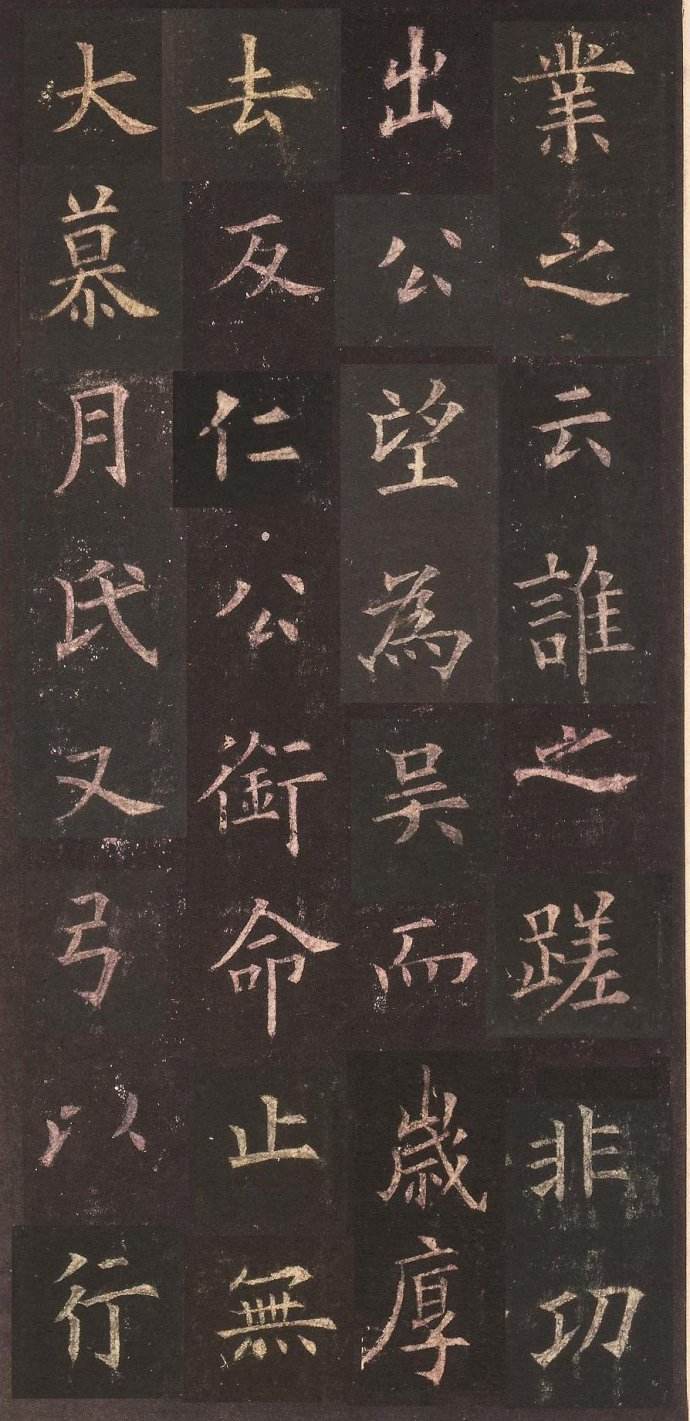 業之云誰之蹉非功
出公望為吳而歲厚
去反仁公銜命止無
大慕月氏又弓以行